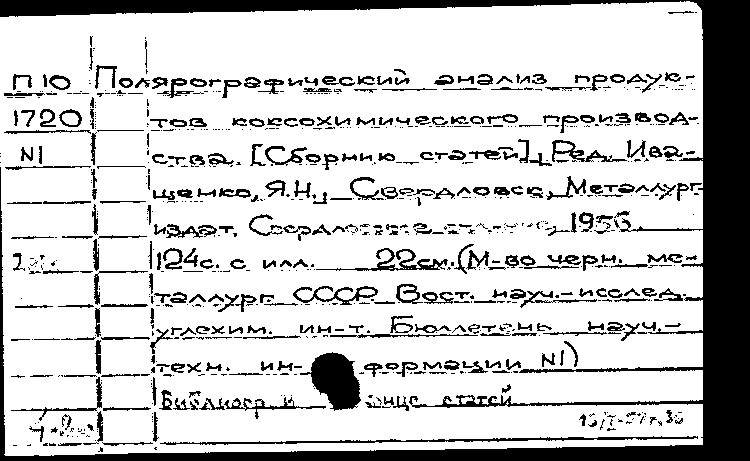 П10 Полярографический анализ продук-
1720 тов коксохимического производ-
N1 ства. [Сборник статей], Ред. Ива-
щенко, Я.Н., Свердловск, Металлург-
издат. Свердловское 1956.
124с. с илл. 22см. (М-во черн. ме-
таллург СССР Вост. науч.-исслед.
углехим. ин-т. Бюллетень науч.-
техн. ин- формации N1)
Библиогр. в конце статей